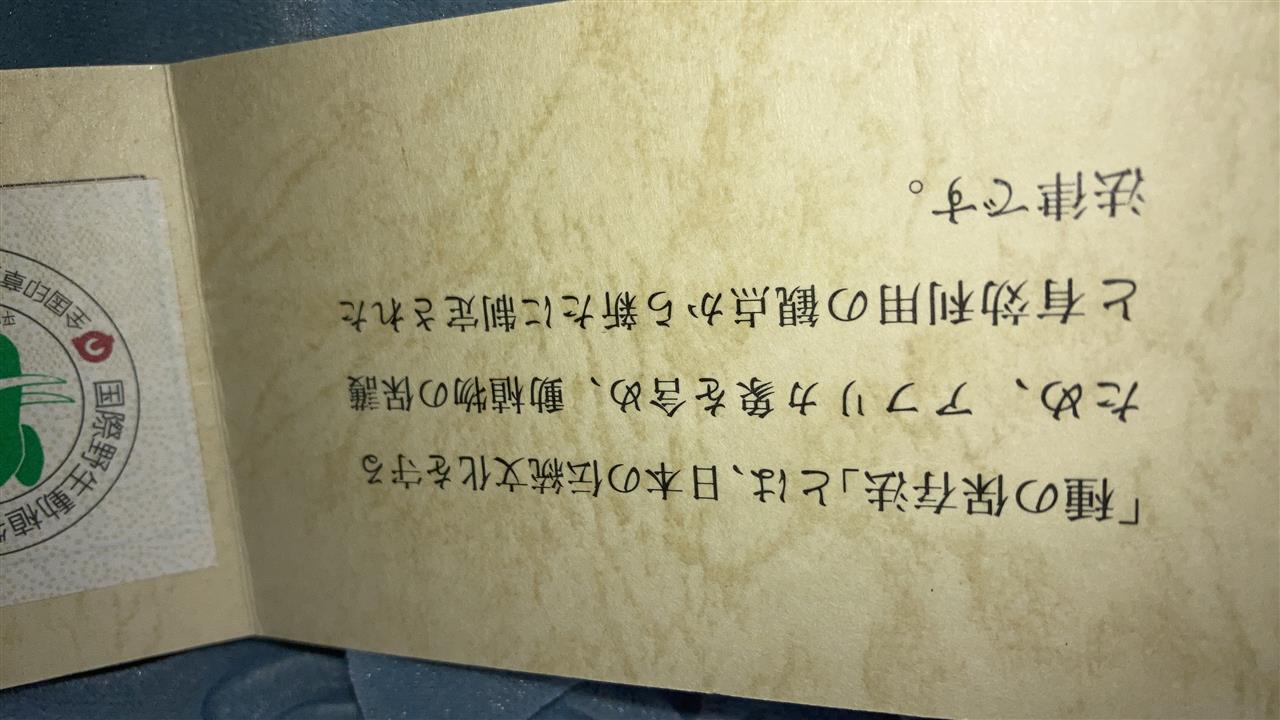 「種の保存法」とは、日本の伝統文化を守る
ため、アフリカ象を含め、動植物の保護
と有効利用の観点から新たに制定された
法律です。
国際野生動植
全国印章